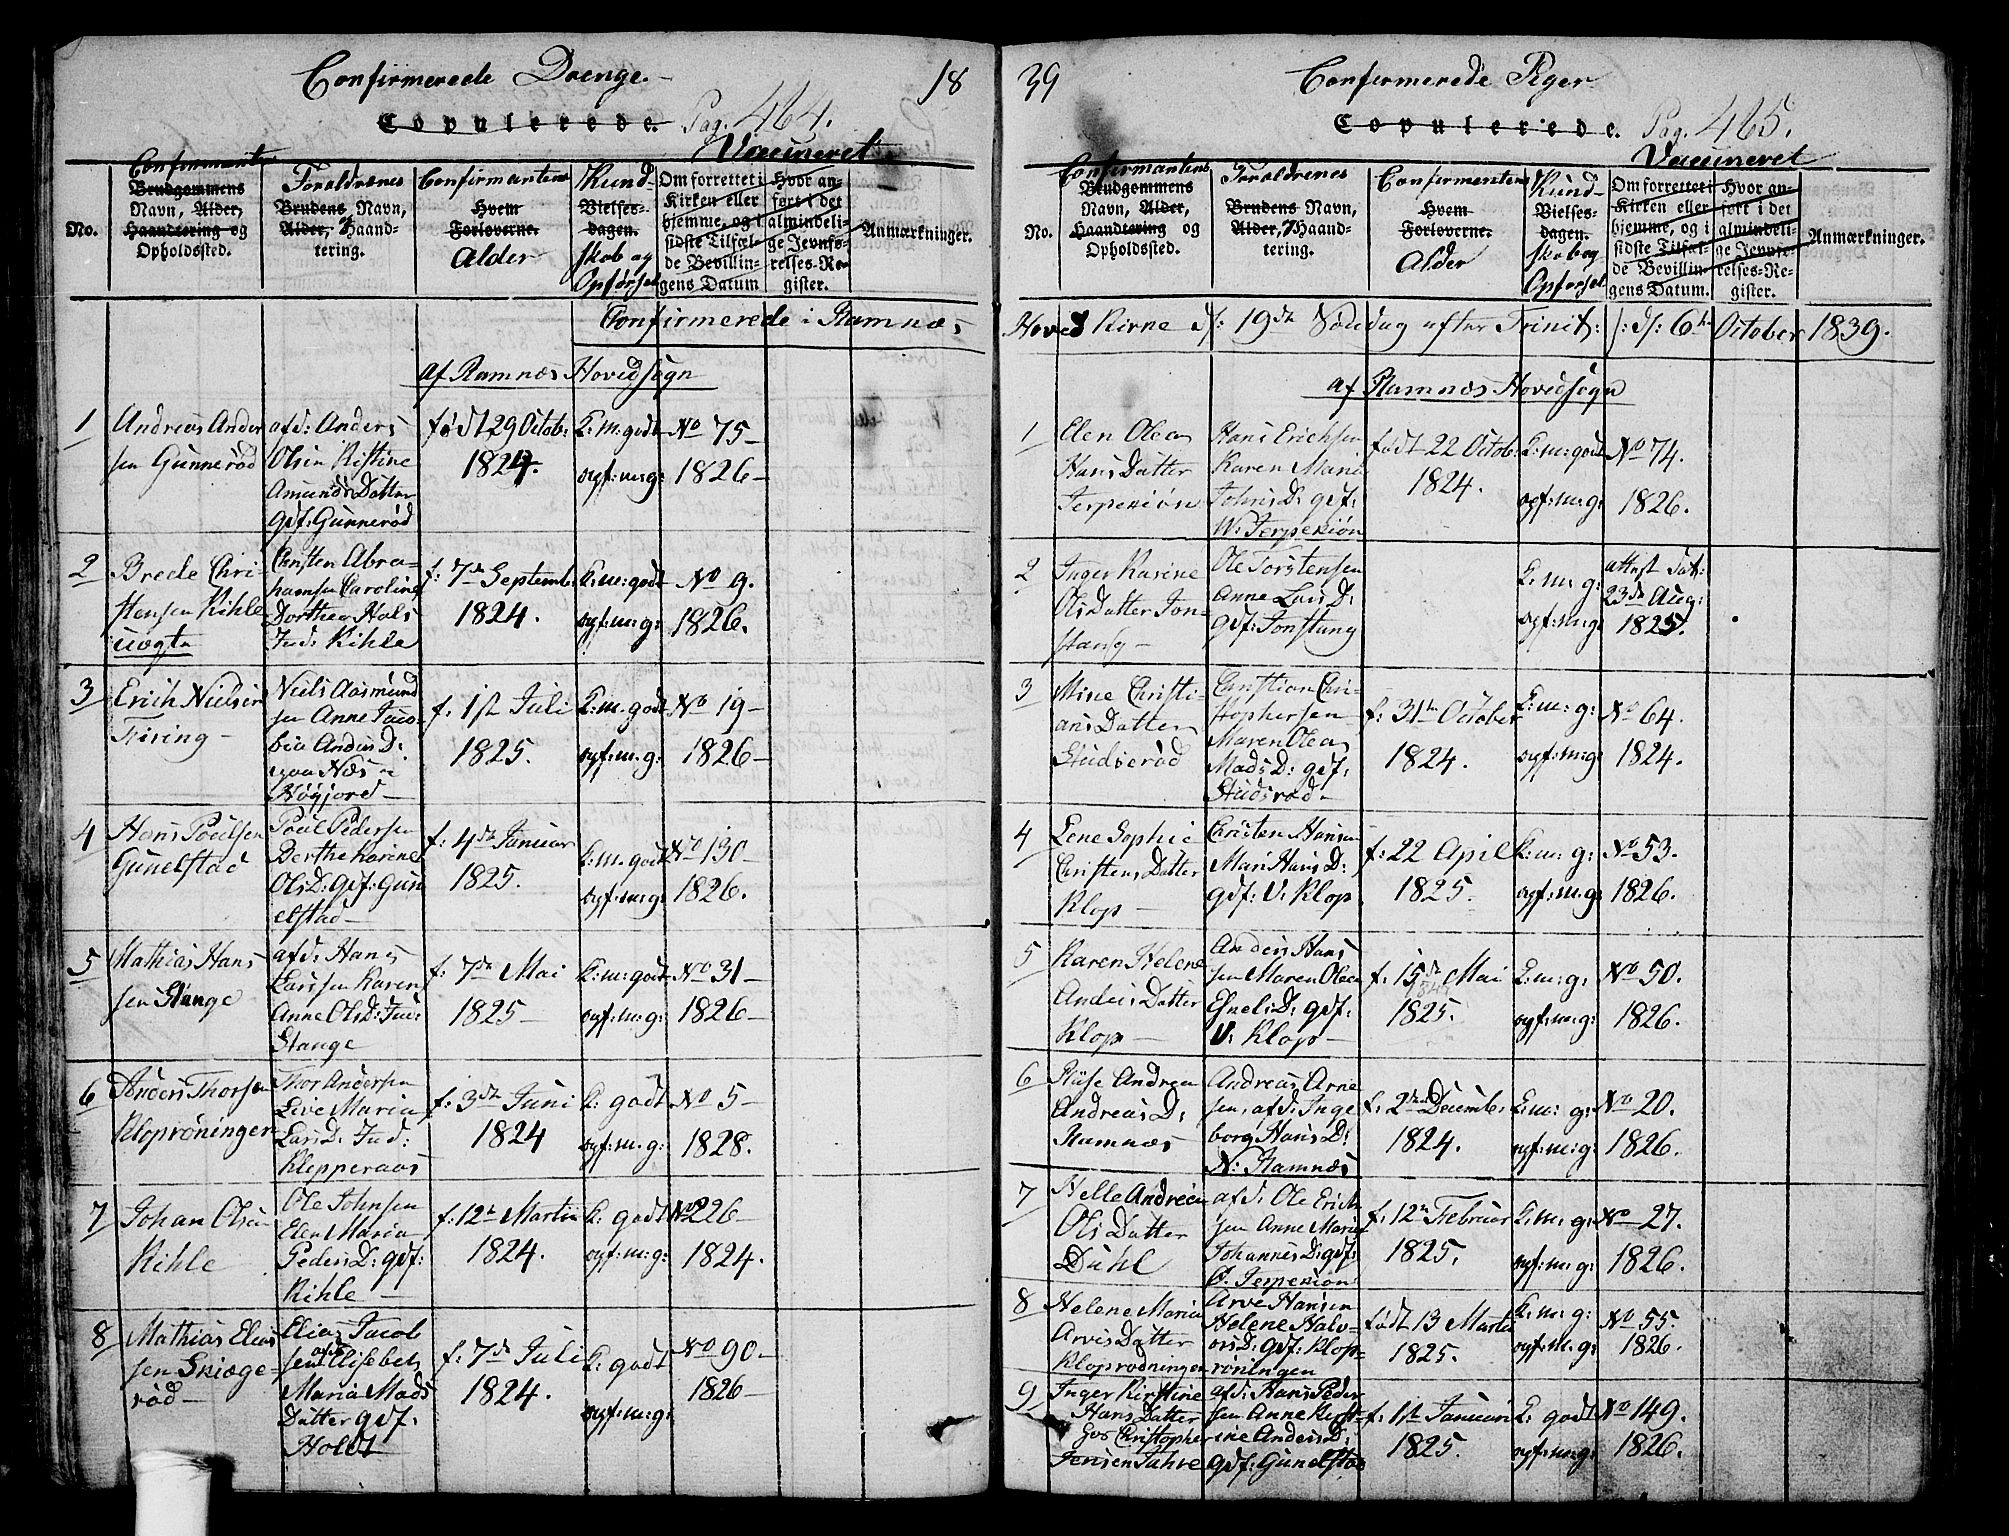 Confirmerede Drenge.
18
Copulerede. Pag. 464.
Vaccineret
Confirmanten
Foraldrenes
Confirmantens
Kund-
No.
Brudgommens
Navn, Alder,
Haandtering og
Opholdssted.
Brudens Navn,
Alder, Haand-
tering.
Hvem
Forloverne.
Alder
Vielses-
dagen.
skab og
Opførsel
Om forrettet i
Kirken eller
hjemme, og i
sidste Tilfæl-
de Bevillin-
gens Datum
Hvor an-
ført i det
almindeli-
ge Jevnfø-
relses-Re-
gister.
Anmærkninger.
Confirmerede i Ramnæs
af Ramnæs Hovedsogn
1
Andreas Ander
sen Gunnerød
afd: Anders
Olsen Kistine
Amunds Datter
gdf: Gunnerød
født 29 Octob:
1824.
K: m: godt
opf: m: g:
No 75-
1826-
2
Brede Chri-
stensen Kihle
uægte
Christen Abra-
hamsen Caroline
Dorthea Hals
Ind: Kihle
f: 7de Septemb
1824.
K: m: godt
opf: m: g:
No 9.
1826.
3
Erich Nielsen
Firing-
Niels Aasmund
sen Anne Jaco-
bea Anders D:
paa Næs i
Høyjord-
f: 1st Juli
1825.
K: m. godt
opf: m. g:
No 19-
1826-
4
Hans Poulsen
Gunelstad
Poul Pedersen
Berthe Karine
Ols D: gdf: Gun
elstad-
f: 4de Januar
1825.
K: m. godt
opf: m: g:
No 130-
1826.
5
Mathias Hans
sen Stange
afd: Hans
Larssen Karen
Anne Ols D: Ind:
Stange
f: 7de Mai
1825-
K: m: godt
opf: m: g:
No 31-
1826-
6
Anders Thorsen
Kloprøningen
Thor Andersen
Live Maria
Lars D: Ind:
Klepperaas
f: 3de Juni
1824
K: godt
opf: m. g:
No 5-
1828.
7
Johan Olsen
Kihle
Ole Johnsen
Elen Maria
Peders D: gdf:
Kihle-
f: 12te Martii
1824.
K: godt
opf: m: g:
No 226-
1824.
8
Mathias Elias
sen Skiæge-
rød-
Elias Jacob
sen afd: Elisebet
Maria Mads
Datter gdf:
Holdt
f: 7de Juli
1824.
K: godt
opf: m: g:
No 90-
1826-
39
Confirmerede Piger
Copulerede. Pag. 465.
Vaccineret
Confirmantens
Foraldrenes
Confirmantens
Kund-
No.
Brudgommens
Navn, Alder,
Haandtering og
Opholdssted.
Brudens Navn,
Alder, Haand-
tering.
Hvem
Forloverne.
Alder
Vielses-
dagen.
skab og
Opførsel
Om forrettet i
Kirken eller
hjemme, og i
sidste Tilfæl-
de Bevillin-
gens Datum.
Hvor an-
ført i det
almindeli-
ge Jevnfø-
relses-Re-
gister.
Anmærkninger.
Hoved Kirke d: 19de Søndag efter Trinit: /: d: 6te October 1839.
af Ramnæs Hovedsogn
1
Elen Olea
Hans Datter
Jerpekiøn
Hans Erichsen
Karen Marie
Johns D: gdf:
W: Jerpekiøn
født 22 Octob:
1824.
K: m: godt
opf: m: g:
No 74.
1826.
2
Inger Karine
Ols Datter Jon-
stang-
Ole Torstensen
Anne Lars D:
gdf: Jonstang
K: m: g:
opf: m: g:
attest dat:
23de Aug:
1825.
3
Mine Christi-
ans Datter
Studsrød
Christian Chri-
stophersen
Maren Olea
Mads D: gdf:
Studsrød-
f: 31te October
1824.
K: m: g:
opf: m: g:
No 64.
1824.
4
Lene Sophie
Christens Datter
Klop-
Christen Hansen
Mari Hans D:
gdf: V: Klop
f: 22 April
1825.
K: m: g:
opf: m: g:
No 53.
1826.
5
Karen Helene
Anders Datter
Klop-
Anders Hans
sen Maren Olea
Engels D: gdf:
V: Klop-
f: 15de Mai
1825.
K: m: g:
opf: m: g:
No 50.
1826.
6
Andrea
Andreas D:
Ramnæs
Andreas Arne
sen, afd: Inge
borg Hans D:
N: Ramnæs
f: 2den December
1824.
K: m: g:
opf: m: g:
No 20.
1826.
7
Helle Andrea
Ols Datter
Duhl
afd: Ole Erich
sen Anne Maria
Johannes D: gdf:
Ø. Jerpekiøn
f: 12te Februar
1825.
K: m: g:
opf: m: g:
No 27.
1826.
8
Helene Maria
Arves Datter
Kloprødningen
Arve Hansen
Helene Halvo-
rs D: gdf: Klop-
røningen
født 13 Martii
1825.
K: m: g:
opf: m: g:
No 55.
1826.
9
Inger Kirstine
Hans Datter
hos Christopher
Jensen Jahre
afd: Hans Peder
sen Anne Kirst-
ine Anders D:
gdf: Gunelstad
f: 1ste Januari
1825.
K: godt
opf: m: g:
No 149.
1826.